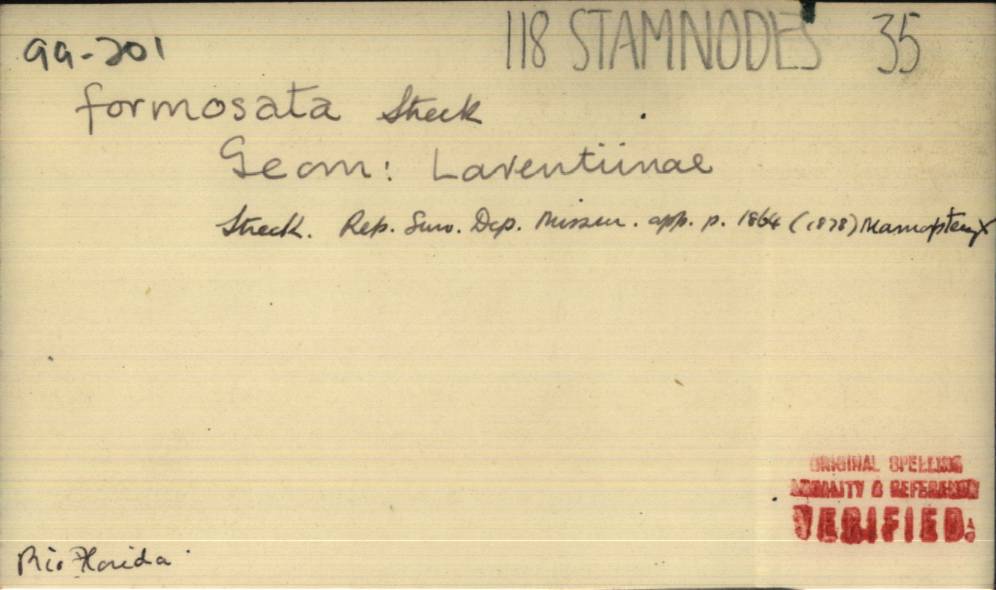 99-201
118 STAMNODES 35
formosata Streck
Geom: Larentiinae
Streck. Rep. Surv. Dep. Missou. app. p. 1864 (1878) Marmopteryx
ORIGINAL SPELLING
LOCALITY & REFERENCE
VERIFIED.
Rio Florida